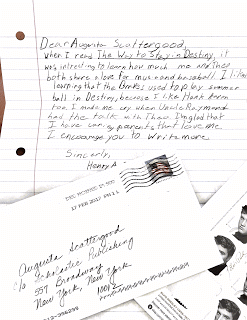 Dear Augusta Scattergood,
When I read The Way to Stay in Destiny, it
was intresting to learn how much me and Theo
both share a love for music and baseball. I like
learning that the Braves used to play summer
ball in Destiny, because I like Hank Aaron
too. I made me cry when Uncle Raymond
had the talk with Theo. I'm glad that
I have caring parents that love me.
I encourage you to write more
Sincerly,
Henry A
17 FEB 2017 PM 11
Augusta Scattergood
c/o Scholastic Publishing
557 Broadway
New York, New York
10012